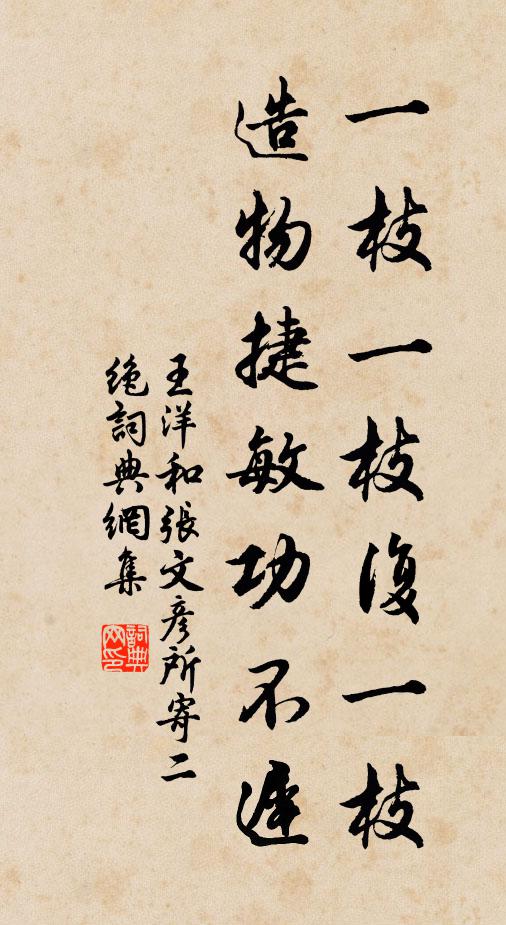 一枝一枝復一枝
造物捷敏功不遲
王洋和張文彦所寄二
絶詞典網集
詞典網印